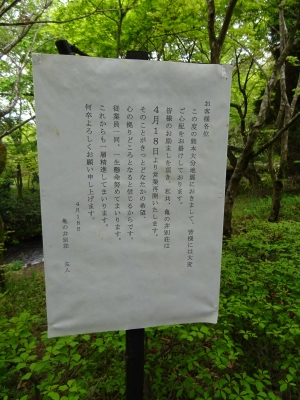 お客様各位
この度の熊本大分地震におきまして、皆様には大変
ご心配をお掛けしております。
皆様のお励ましを頂き、私共、亀の井別荘は
4月18日より営業再開いたします。
そのことがきっとどなたかの希望、
心の拠りどころとなると信じるからです。
従業員一同、一生懸命努めてまいります。
これからも一層精進してまいります。
何卒よろしくお願い申し上げます。
4月18日
亀の井別荘 主人